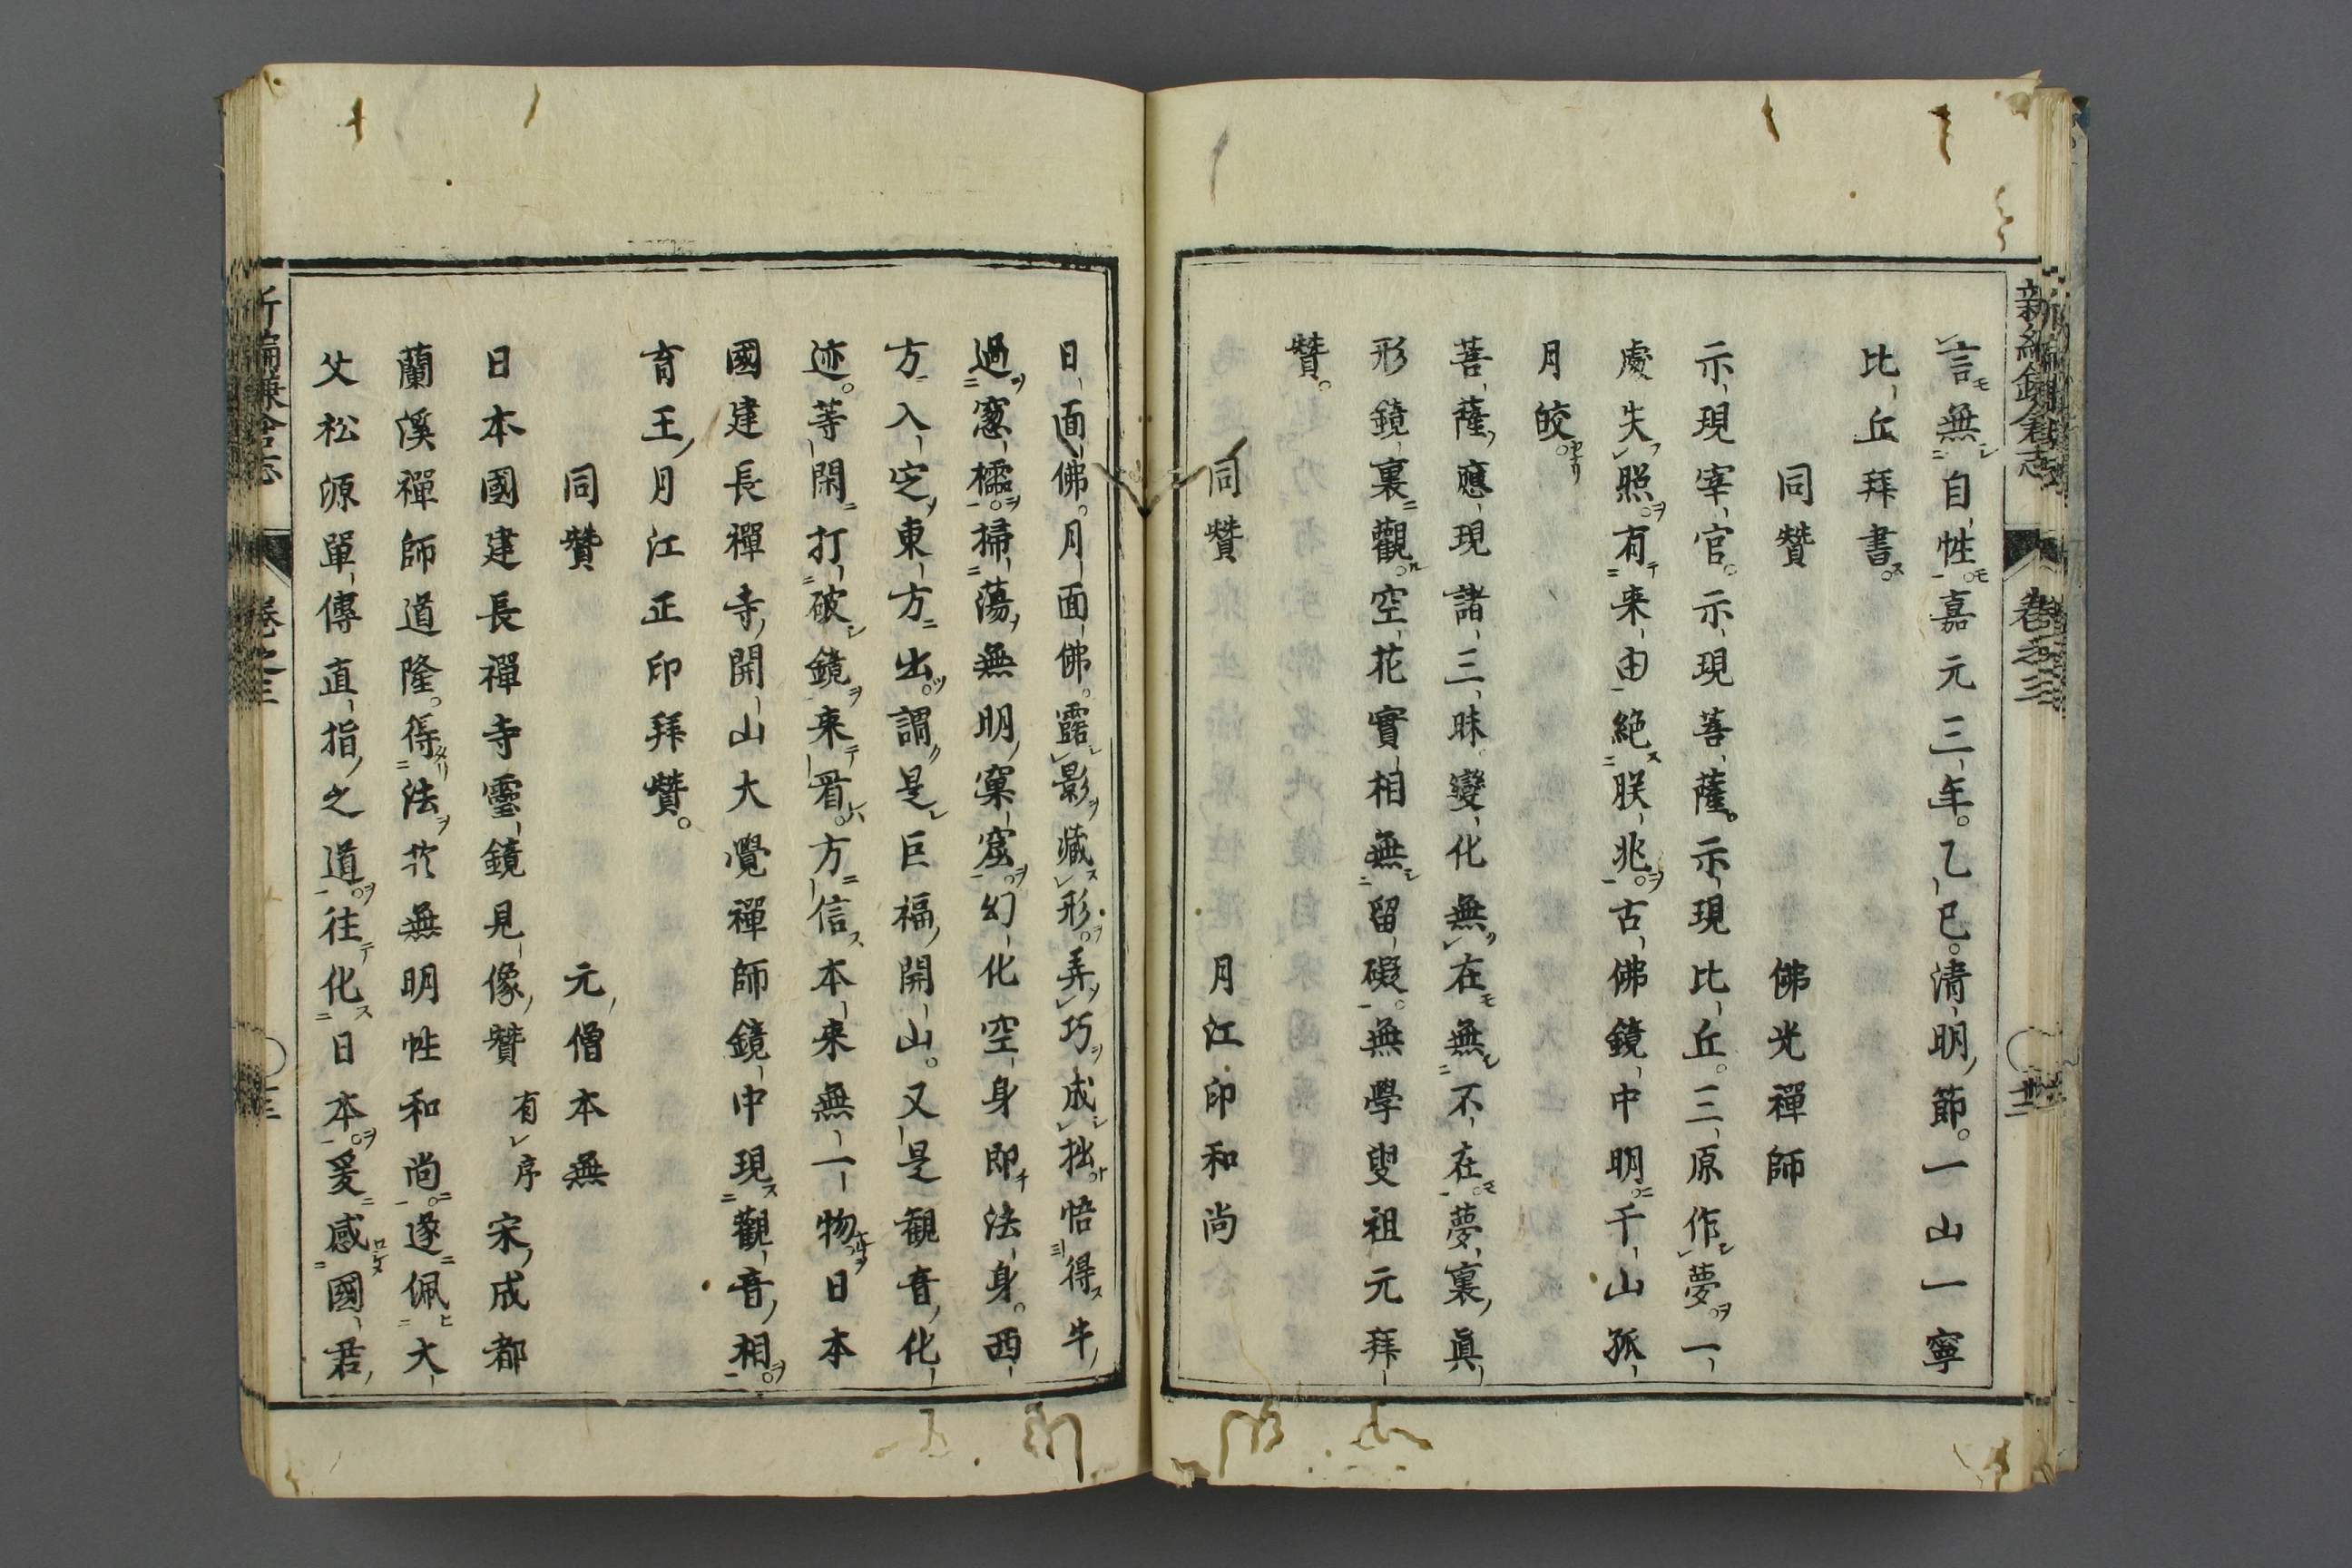 言無自性嘉元三年。乙巳。清明節。一山一寧
比丘拜書。
同贊 佛光禪師
示現宰官。示現菩薩。示現比丘。三原作夢一
處失照。有来由絶朕兆。古佛鏡中明。千山孤
月皎。
菩薩應現諸三昧變化無在無不在。夢裏眞
形鏡裏觀。空花實相無留礙。無學叟祖元拜
贊。
同贊 月江印和尚
新編鎌倉志 卷之三
日面佛。月面佛。露影藏形。弄巧成拙。悟得牛
過窓櫺。掃蕩無明窠窟。幻化空身即法身。西
方入定東方出。謂是巨福開山。又是観音化
迹。等閑打破鏡来看。方信本来無一物日本
國建長禪寺開山大覺禪師鏡中現觀音相。
育王月江正印拜贊。
同贊 元僧本無
日本國建長禪寺靈鏡見像贊 有序 宋成都
蘭溪禪師道隆。得法於無明性和尚。遂佩大
父松源單傳直指之道。往化日本。爰感國君
新編鎌倉志 卷之三